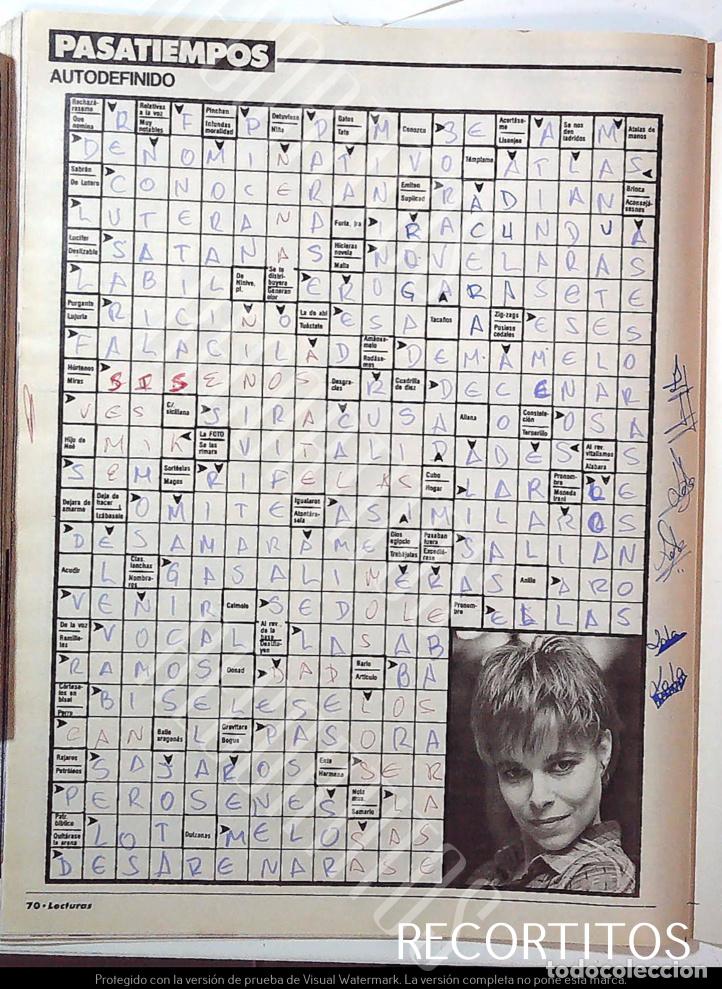 PASATIEMPOS
AUTODEFINIDO
Rechazá-
rasamo
Que
nomina
R
Relativas
a la voz
Muy
notables
F
Pinchan
Infundas
moralidad
P
Detuviese
Niña
D
Gatos
Tate
M
Conozca
S E
Acertáse-
me
Lisonjee
A
Se nos
den
ladridos
M
Atalas de
manos
D E N O M I N A T I V O
Témplame
A T L A S
Sabrán
De Lutero
C O N O C E R A N
Emiten
Suplicad
R A D I A N
Brinca
Aconsejá-
sesnos
L U T E R A N A
Furia, ira
I R A C U N D U A
Lucifer
Deslizable
S A T A N A S
Hicieras
novela
Malla
N O V E L A R A S
L A B I L
De
Nínive,
pl.
Se lo
distri-
buyera
Generan
olor
E R O G A R A S E T E
Purgante
Lujuria
R I C I N O
La de ahí
Tuéstate
E S A
Tacaños
A
Zig-zags
Pusiese
cedales
E S E S
F A L A C I L A D
Amánse-
melo
Rodáse-
mos
D E M A M E L O
Hártenos
Miras
S I S E N O S
Desgra-
cies
R
Cuadrilla
de diez
D E C E N A R
V E S
C/.
siciliana
S I R A C U S A
Allana
O
Conste-
lación
Ternerillo
O S A
Hijo de
Noé
M I K
La FGTO
Se las
rimara
V I T A L I D A D E S
Al rev.
vitalismos
Alabara
S
S E M
Sortéelas
Magos
R I F E L A S
Cubo
Hogar
L A R
Pronom-
bre
Moneda
iraní
L E
Dejara de
amarme
Deja de
hacer
Izábasale
O M I T E
Igualaros
Atontára-
sela
A S I M I L A R O S
D E S A M A R A M E
Dios
egipcio
Trabájalas
Pasaban
fuera
Expedie-
rase
S A L I A N
Acudir
L
Clas.
lanchas
Nombra-
ros
G A S A L I N E R A S
Anillo
A R O
V E N I R
Calmolo
S E D O L E
Pronom-
bre
E L L A S
De la voz
Ramille-
tes
V O C A L
Al rev.
de la
base
Desliñu-
yen
L A S A B
R A M O S
Donad
D A D
Bario
Artículo
B A
Córtese-
los en
bisel
Perro
B I S E L E S E L O S
C A N
Baile
aragonés
Gravitara
Bogue
P A S O R A
Rajaros
Petróleos
S A J A R O S
Ente
Hermana
S E R
P E R O S E N E S
Nota
mus.
Samario
L A
Patr.
bíblico
Quitárase
la arena
L O T
Dulzonas
M E L O S A S
D E S A R E N A R A S E
70 • Lecturas
RECORTITOS
todocoleccion
Protegido con la versión de prueba de Visual Watermark. La versión completa no pone esta marca.